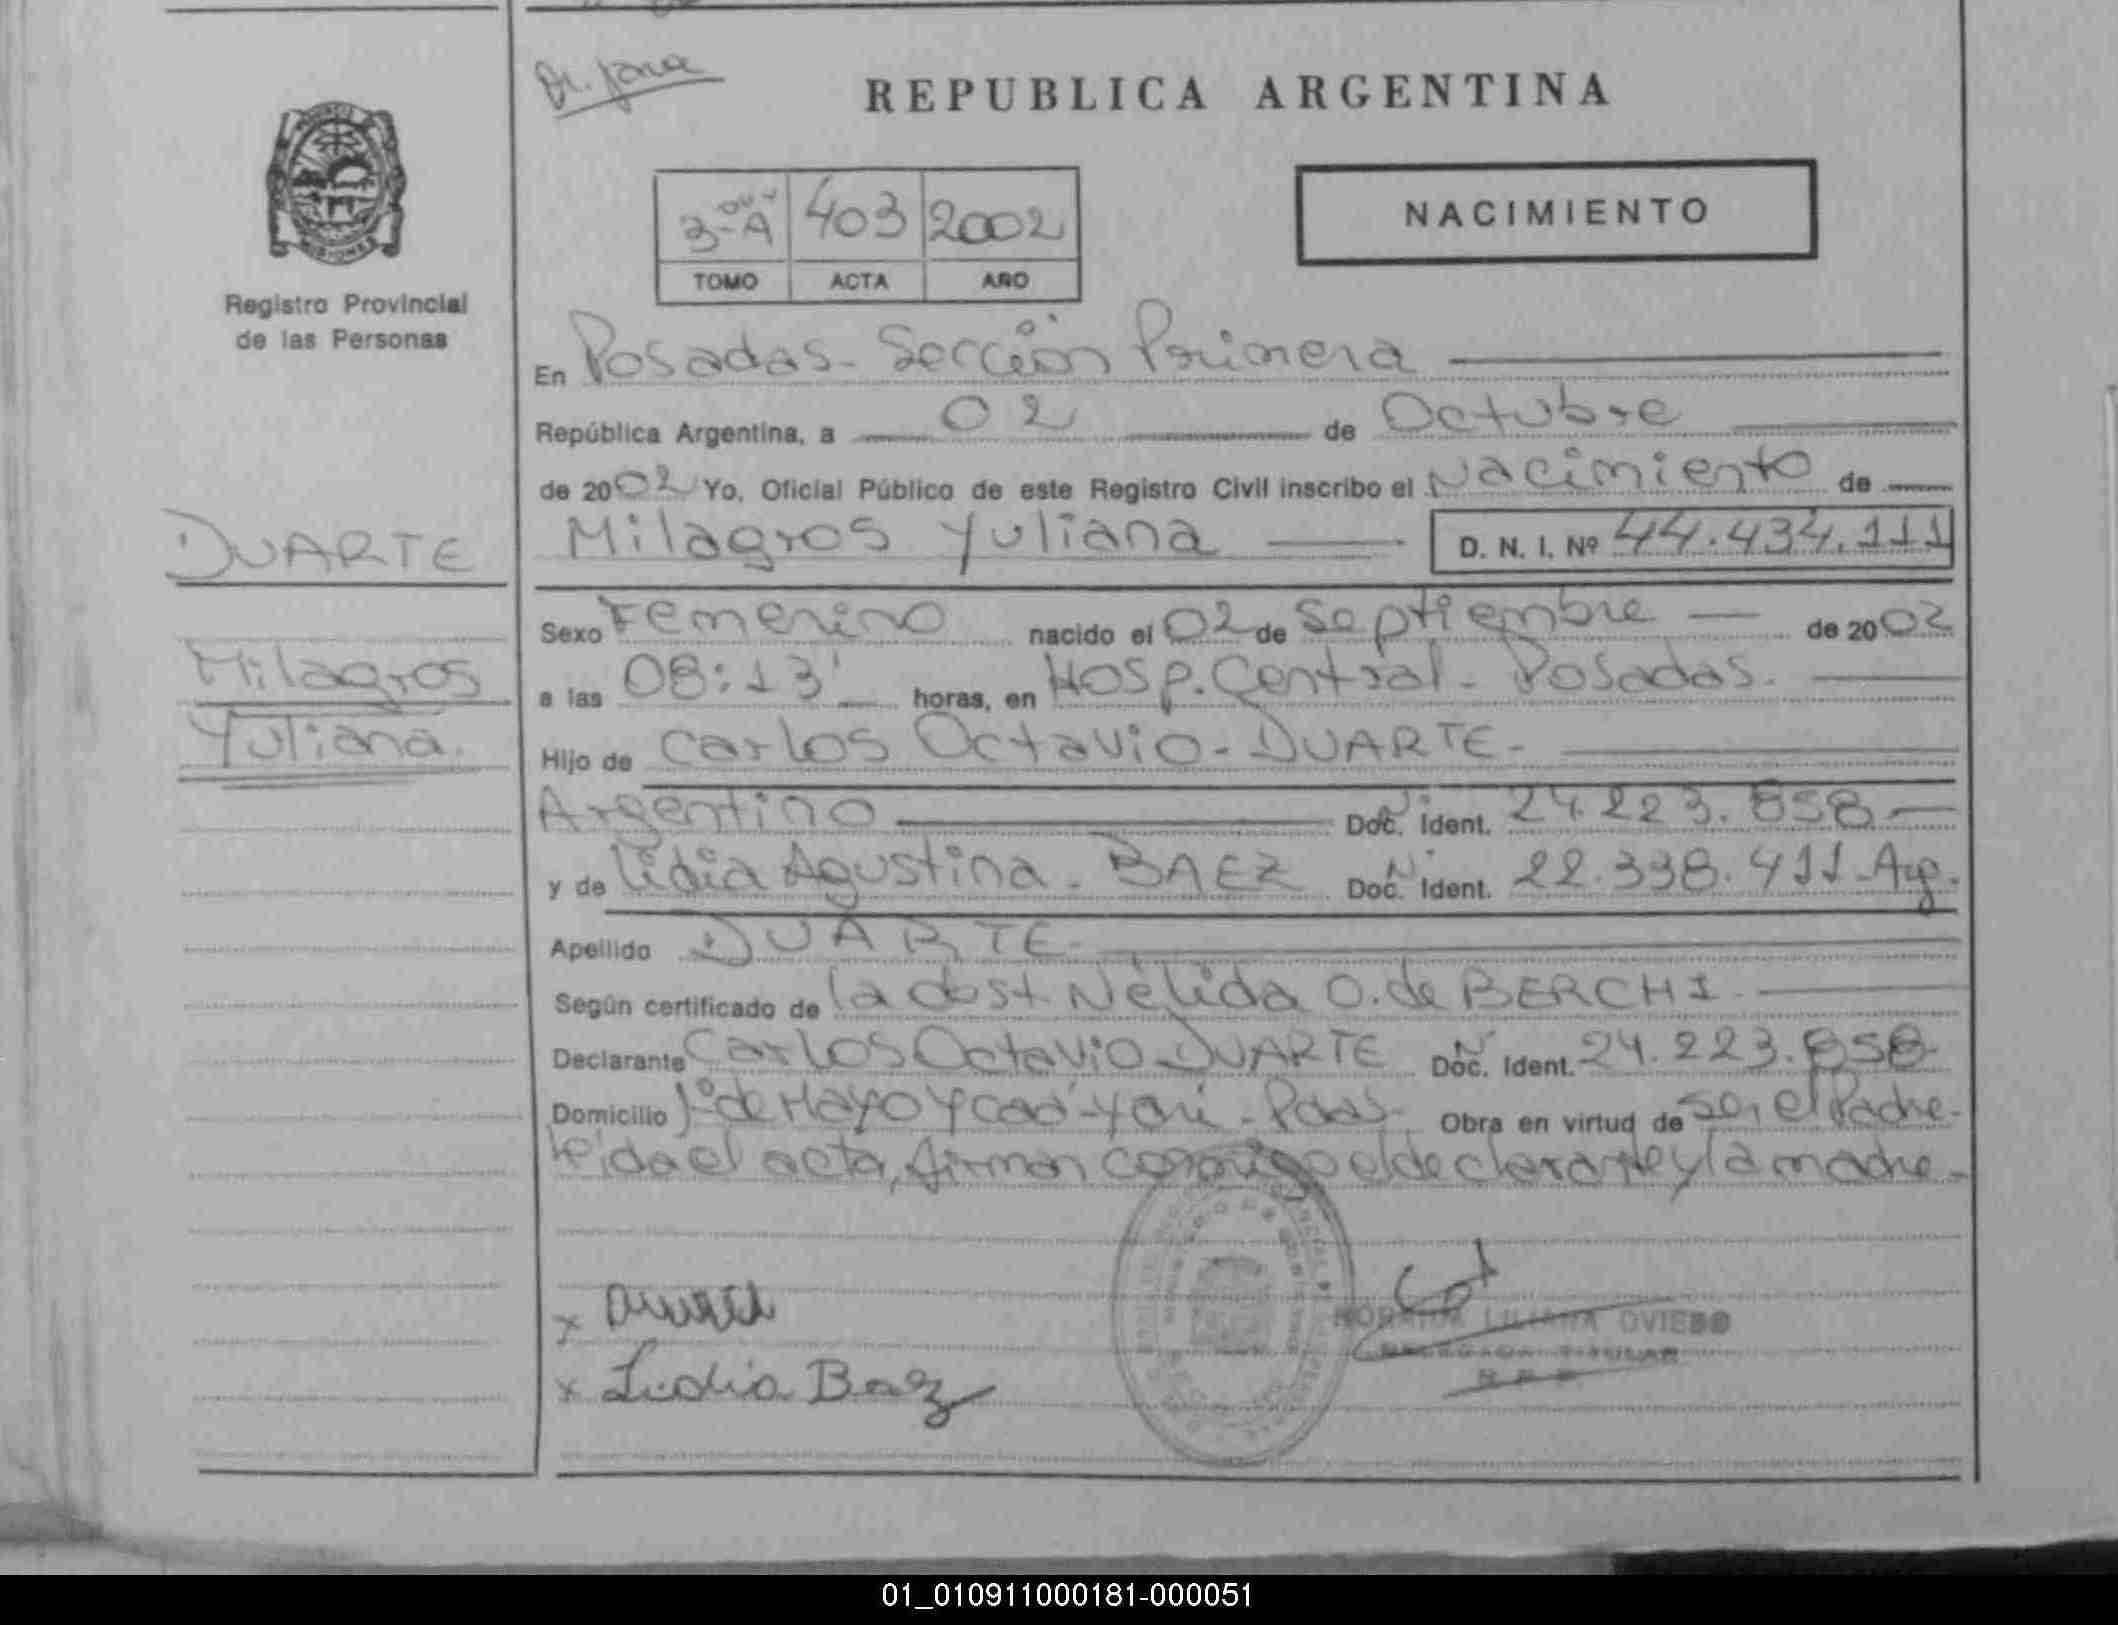 REPUBLICA ARGENTINA
3-A 403 2002
TOMO ACTA AÑO
NACIMIENTO
Registro Provincial
de las Personas
DUARTE
Milagros
Yuliana
En Posadas - Sección Primera
República Argentina, a 02 de Octubre
de 2002 Yo, Oficial Público de este Registro Civil inscribo el Nacimiento de
Milagros Yuliana D. N. I. Nº 44.434.111
Sexo Femenino nacido el 02 de Septiembre de 2002
a las 08:13' horas, en Hosp. Central - Posadas.
Hijo de Carlos Octavio - DUARTE -
Argentino Doc. Ident. 24.223.858 -
y de Lidia Agustina - BAEZ Doc. Ident. 22.338.411 - Arg.
Apellido DUARTE -
Según certificado de la obst Nélida O. de BERCHI
Declarante Carlos Octavio DUARTE Doc. Ident. 24.223.858
Domicilio 1º de Mayo y Caá-Yarí - Pdas - Obra en virtud de Ser el Padre -
Leída el acta, firman conmigo el declarante y la madre -
x Lidia Baez
LILIANA OVIEDO
DELEGADA TITULAR
01_010911000181-000051